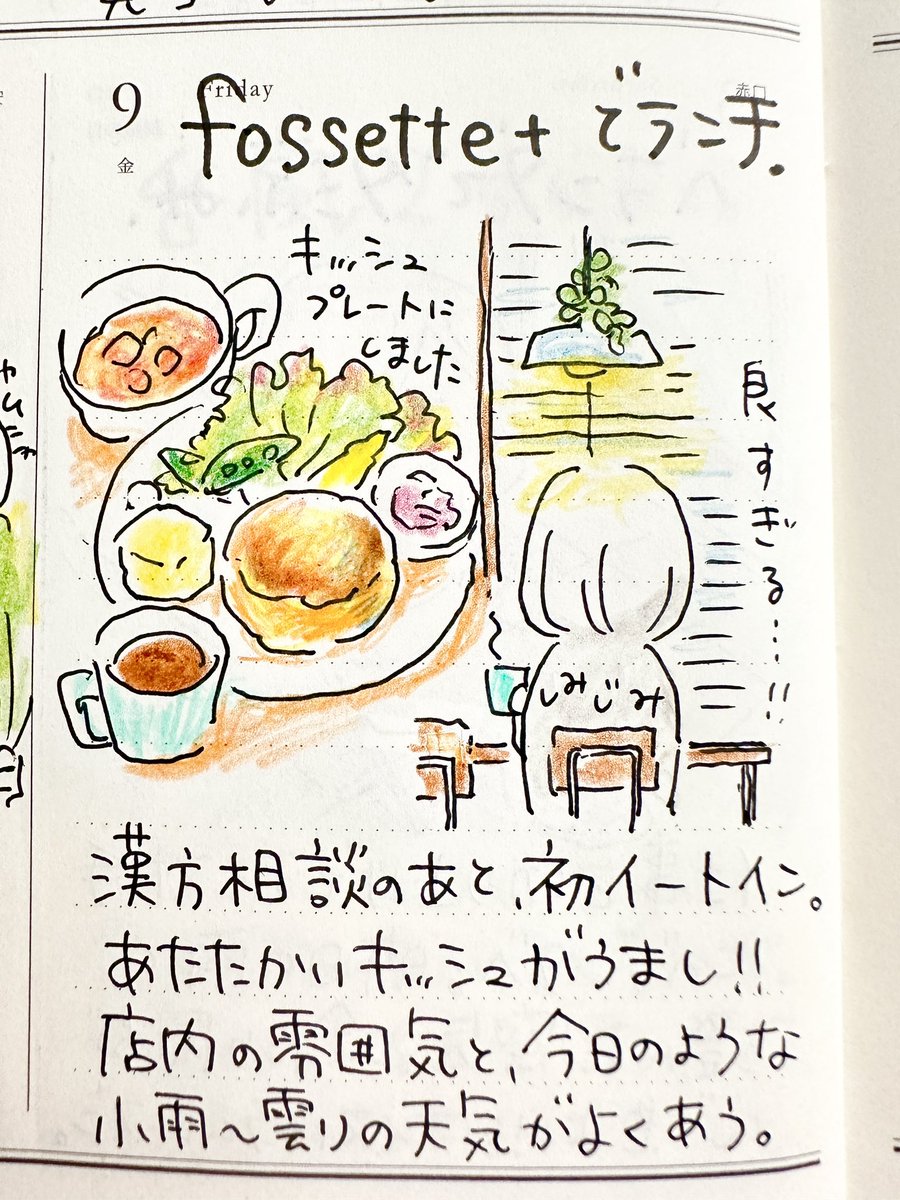 9
Friday
金
赤口
fossette+ でランチ.
キッシュ
プレートに
しました
良すぎる…!!
しみじみ
漢方相談のあと、初イートイン。
あたたかいキッシュがうまし!!
店内の雰囲気と、今日のような
小雨〜曇りの天気がよくあう。